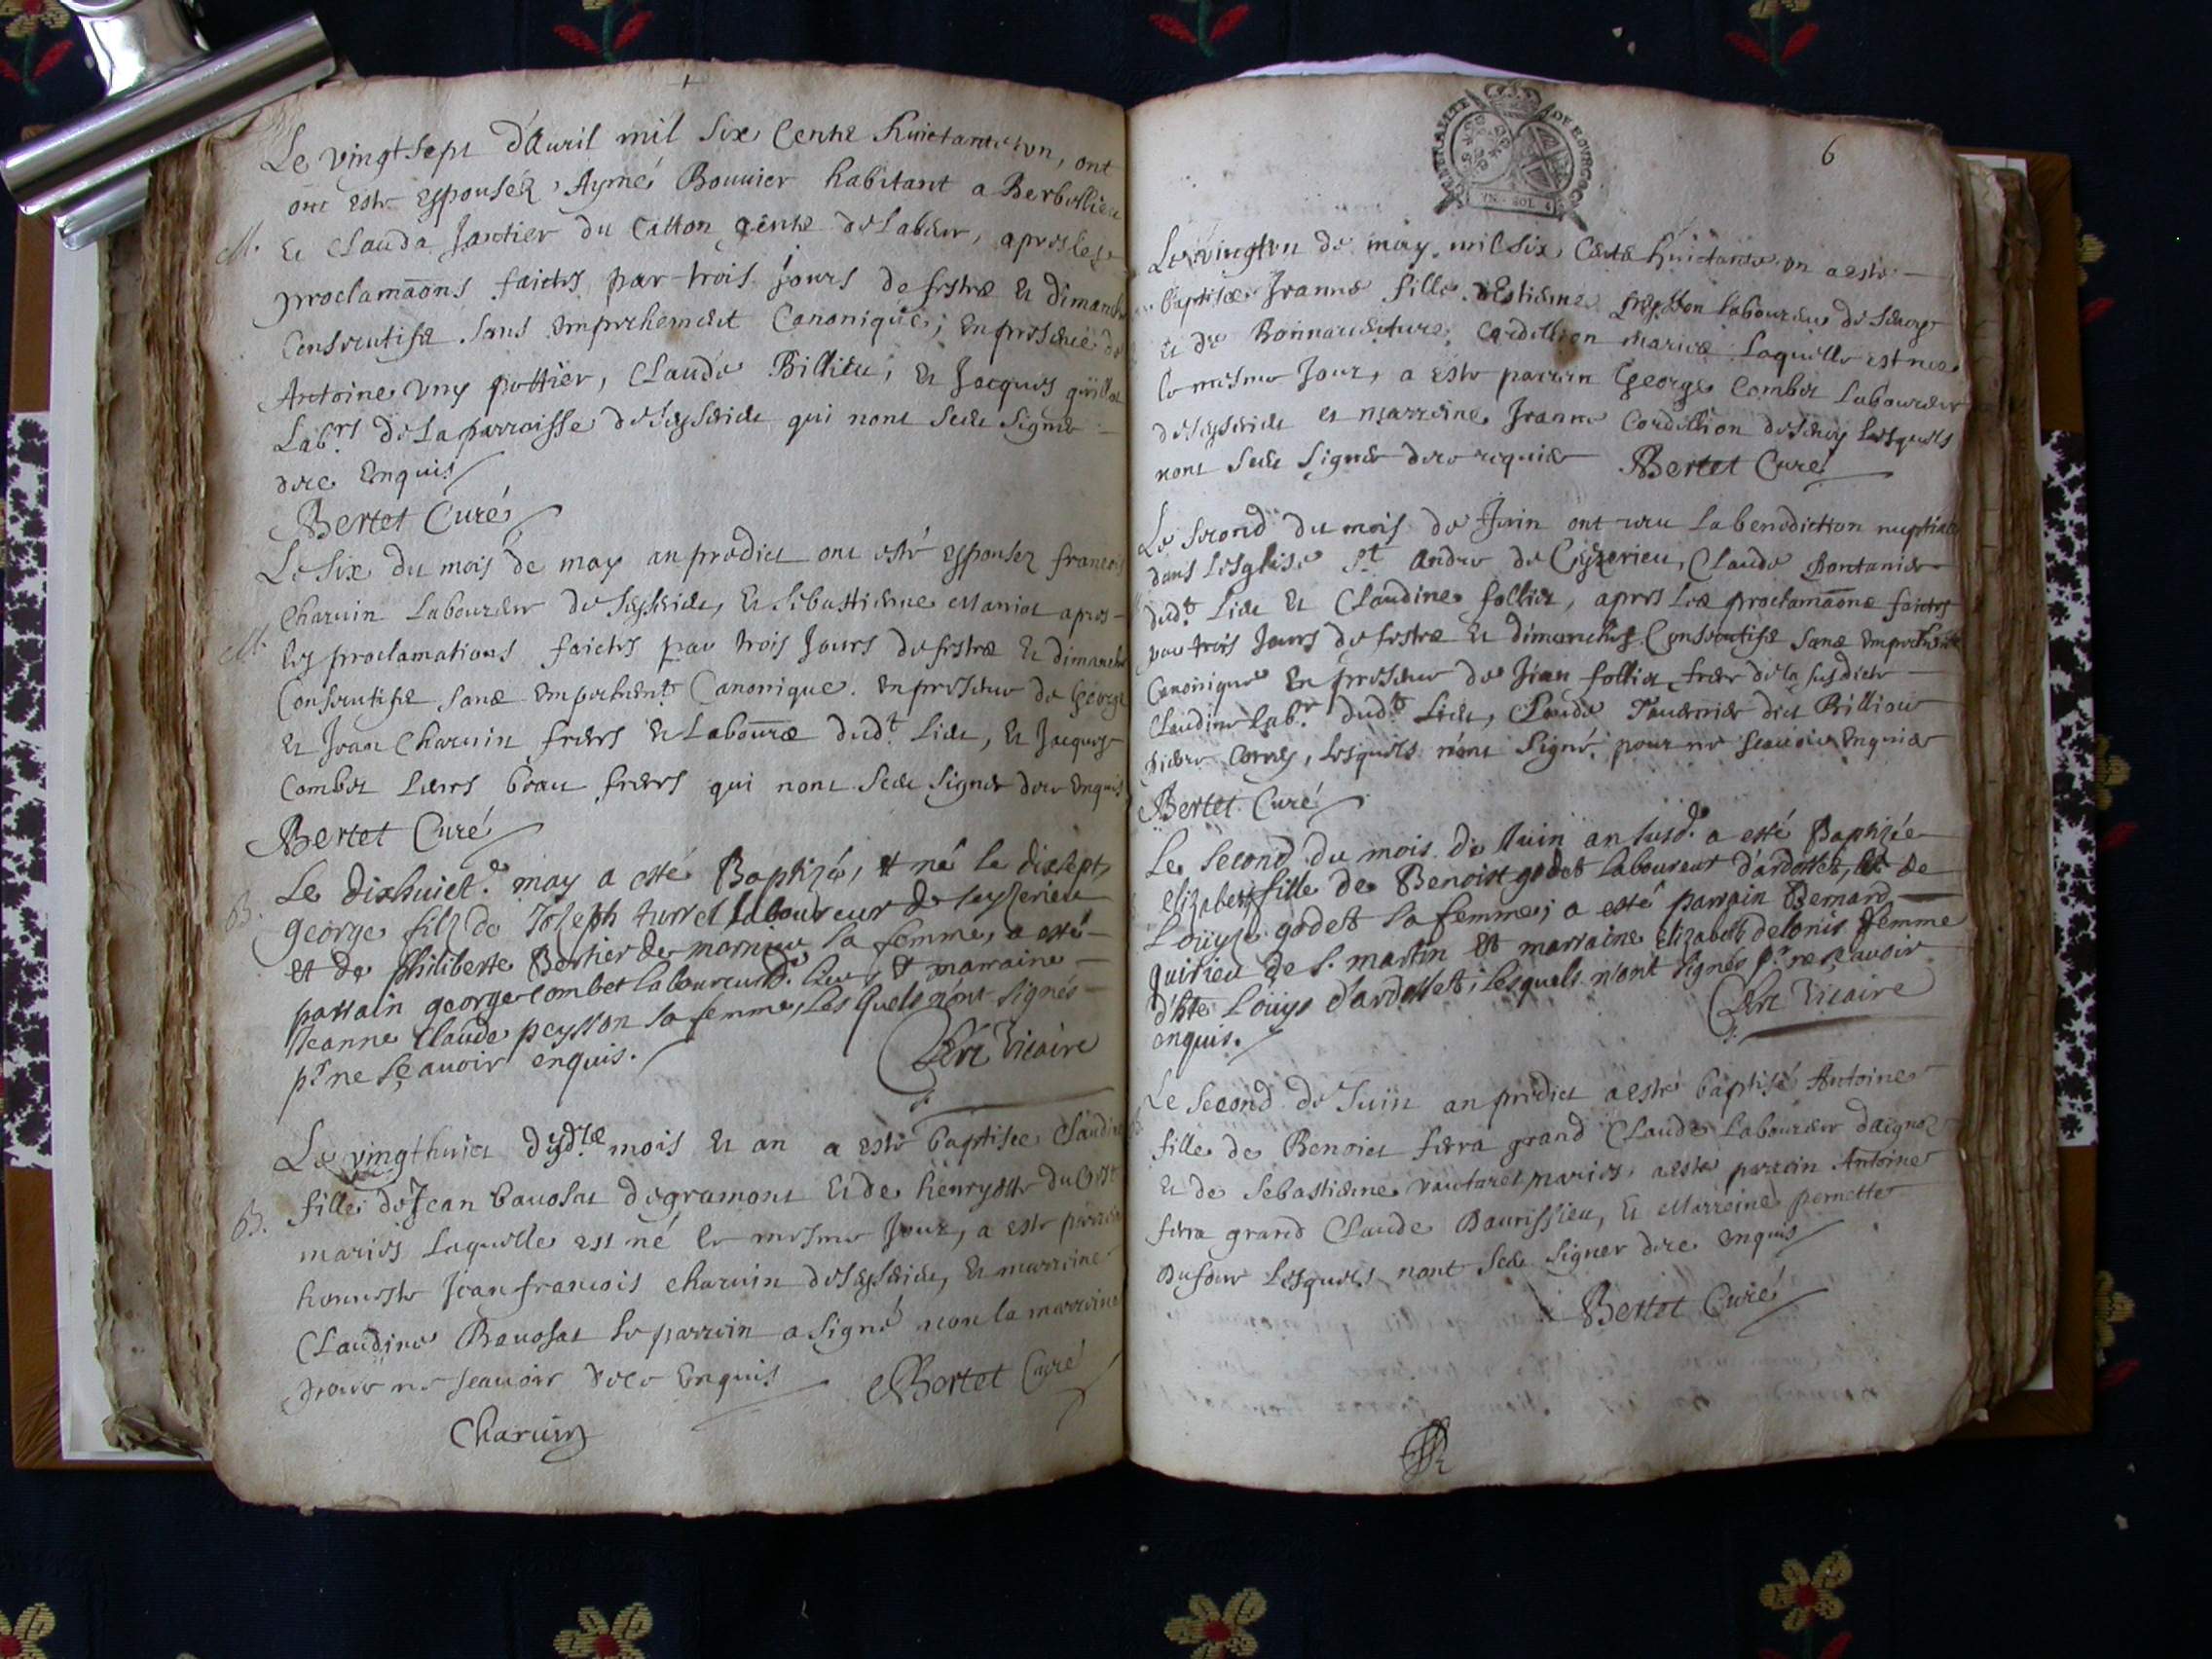 Le vingt sept d'Auril mil six Cents huictante vn, ont
ont este espousez, Aymé Bouuier habitant a
Et Clauda du Catton gents de labeur, apres les
proclamaōns faictes par trois jours de festes Et dimanches
Consecutifs sans empechement Canonique; En presence de
Antoine Vny pottier, Claude Billieu, Et Jacques
Lab.rs de la parroisse de qui nont sceu signer
dere Enquis
Bertet Curé
Le six du mois de may an predict ont esté espousez francois
Charuin Laboureur de Et Sebastienne Marriet apres
les proclamations faictes par trois jours de festes Et dimanches
Consecutifs sans Canonique. En presence de George
Et Jean Charuin freres Et dud.t lieu, Et Jacques
Combet leurs beau freres qui nont sceu signer dere enquis
Bertet Curé
Le dixhuict.e may a esté Baptizé, et né le dixsept,
George filz de Joseph turrel laboureur de
et de philiberte Berthier de marnieu sa femme, a esté
parrain george combet laboureur d. lieu, et marraine
Jeanne Claude peysson sa femme, Les Quels n'ont signés
p.r ne sçauoir enquis.
Vicaire
Le vingthuict mois Et an a este baptisee Claudine
fille de Jean bauosat de gramont Et de
mariés laquelle est né le mesme jour, a este parrein
honneste Jean francois charuin de Et marreine
Claudine Bauosat le parrein a signé non la marreine
pour ne scauoir dere Enquis
Bertet Curé
Charuin
6
GENERALITE DE BOVRGOGNE
VN SOL 4
Le vingtvn de may mil six Cents huictante vn a este
baptisée Jeanne fille d'Estienne laboureur de
Et de Cordillion mariés laquelle est née
le mesme jour, a este parrein George Combet laboureur
de et marreine Jeanne Cordillion de lesquels
nont sceu signer dere requis Bertet Curé
Le second du mois de Juin ont receu la benediction nuptiale
dans lesglise S.t Andre de Claude
dud.t lieu Et Claudine follict, apres les proclamaōns faictes
par trois jours de festes Et dimanches Consecutifs sans
Canonique En presence de Jean follict frere de la susdicte
Claudine lab.r dud.t lieu, Claude dict Billiou
lesquels n'ont signé pour ne scauoir enquis
Bertet Curé
Le second du mois de Juin an susd.t a esté Baptizée
elizabeth fille de Benoist godet laboureur d'ardosset, et de
Louyse godet sa femme; a esté parrain Bernard
quirieu de S. martin et marraine Elizabeth femme
Louys d'ardosset; lesquels n'ont signés p.r ne sçauoir
enquis.
Vicaire
Le second de Juin an predict a este baptisé Antoine
fille de Benoict ferra grand Claude laboureur
Et de Sebastienne mariés, a este parrein Antoine
ferra grand Claude Et Marreine pernette
Dufour lesquels nont sceu signer dere enquis
Bertet Curé